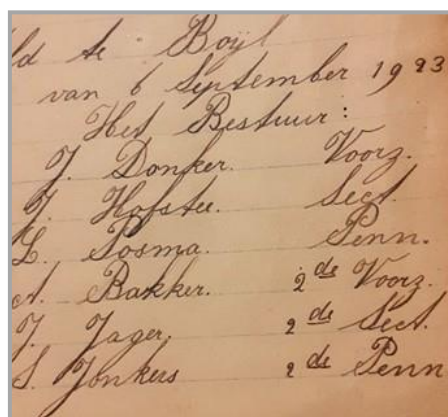 ld te Boijl
van 6 September 1923
Het Bestuur:
J. Donker. Voorz.
J. Hofstee. Sect.
L. Posma. Penn.
A. Bakker. 2de Voorz.
J. Jager. 2de Sect.
S. Jonkers 2de Penn